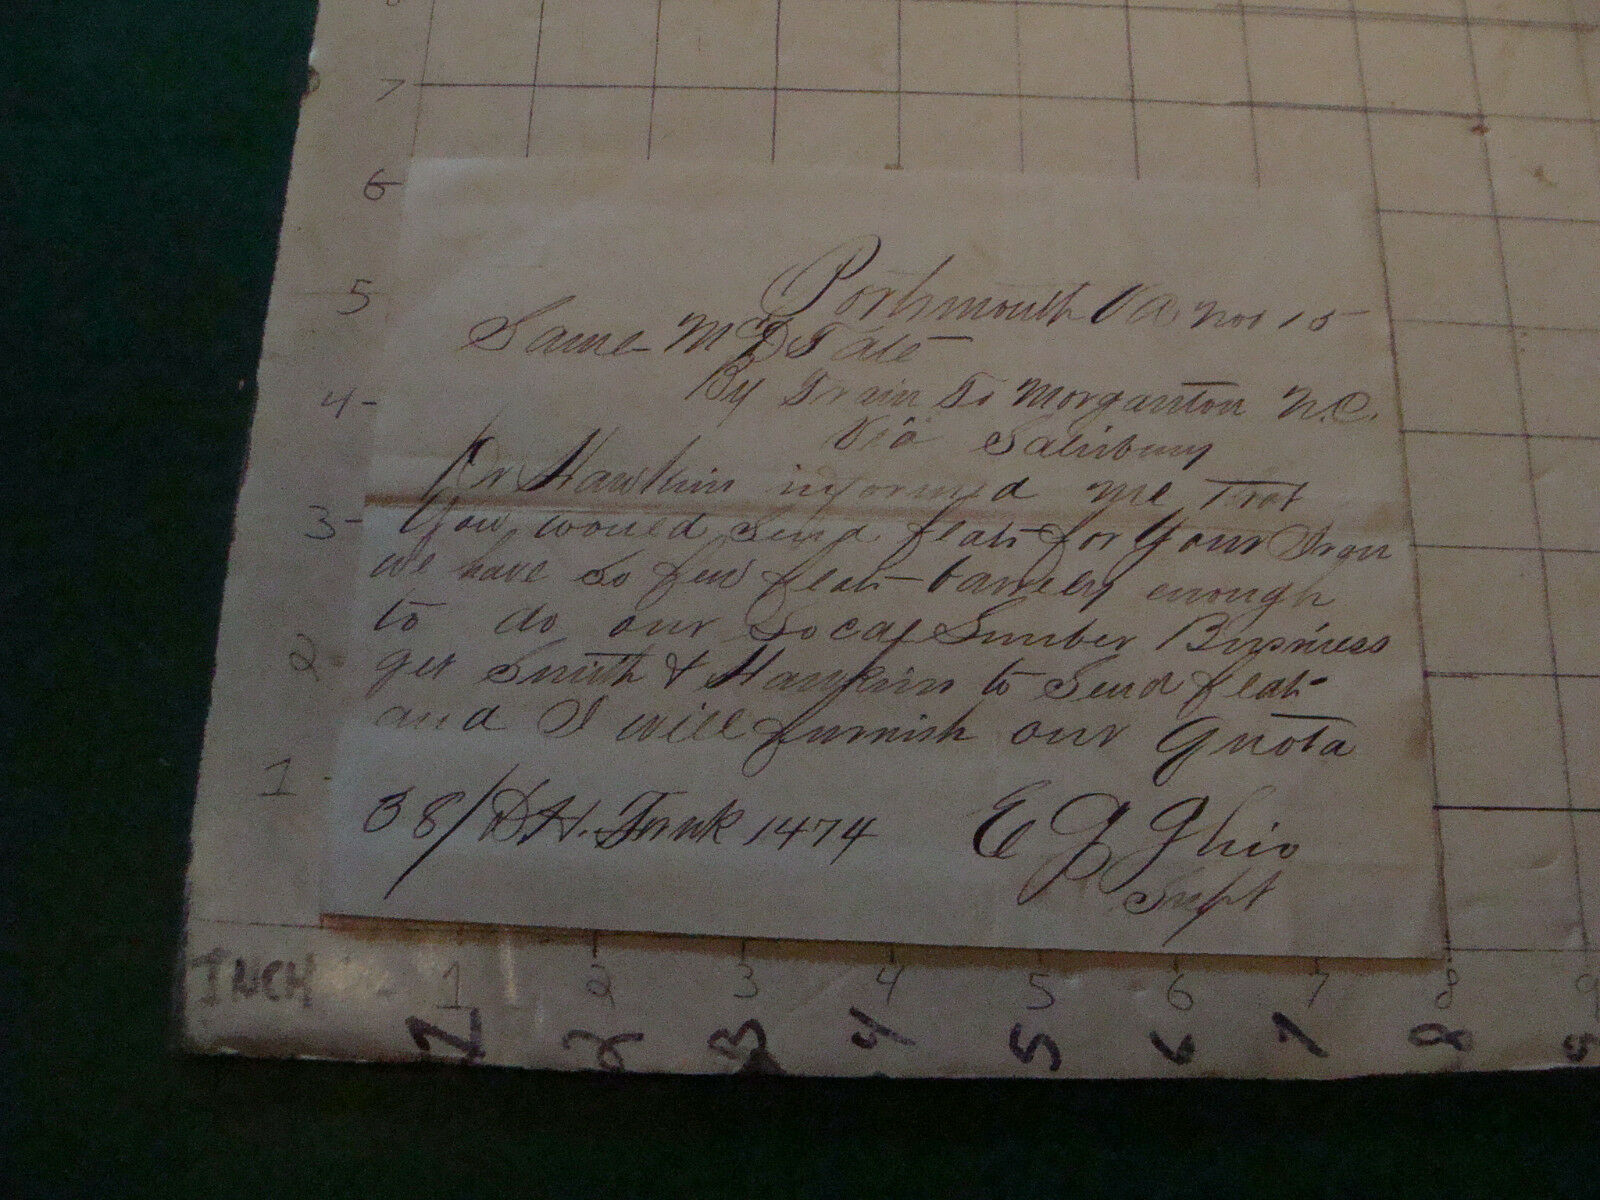 7
6
5
4-
3-
2
1-
Portsmouth Va Nov 15
Same McD Tate
By Train To Morganton N.C.
Via Salisbury
Dr Hawkins informed me That
You would send flats for your Iron
we have so few flats - barrely enough
to do our Local Lumber Business
get Smith & Hawkins to send flats
and I will furnish our quota
38/DH. Frank 1474
E G Ghio
Supt
INCH 1 2 3 4 5 6 7 8 9
1 2 3 4 5 6 7 8 9